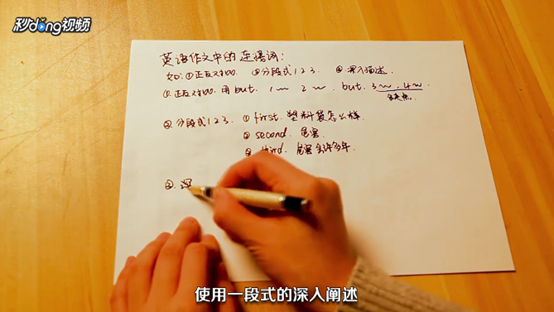 秒dǒng视频
英语作文中的连语词:
如:①正反对比. ②分段式123. ③深入描述.
①正反对比. 用but. 1 2 but. 3 4
②分段式123. ① first. 塑料袋怎么样
② second. 危害
③ third. 危害多年
③ 深
使用一段式的深入阐述